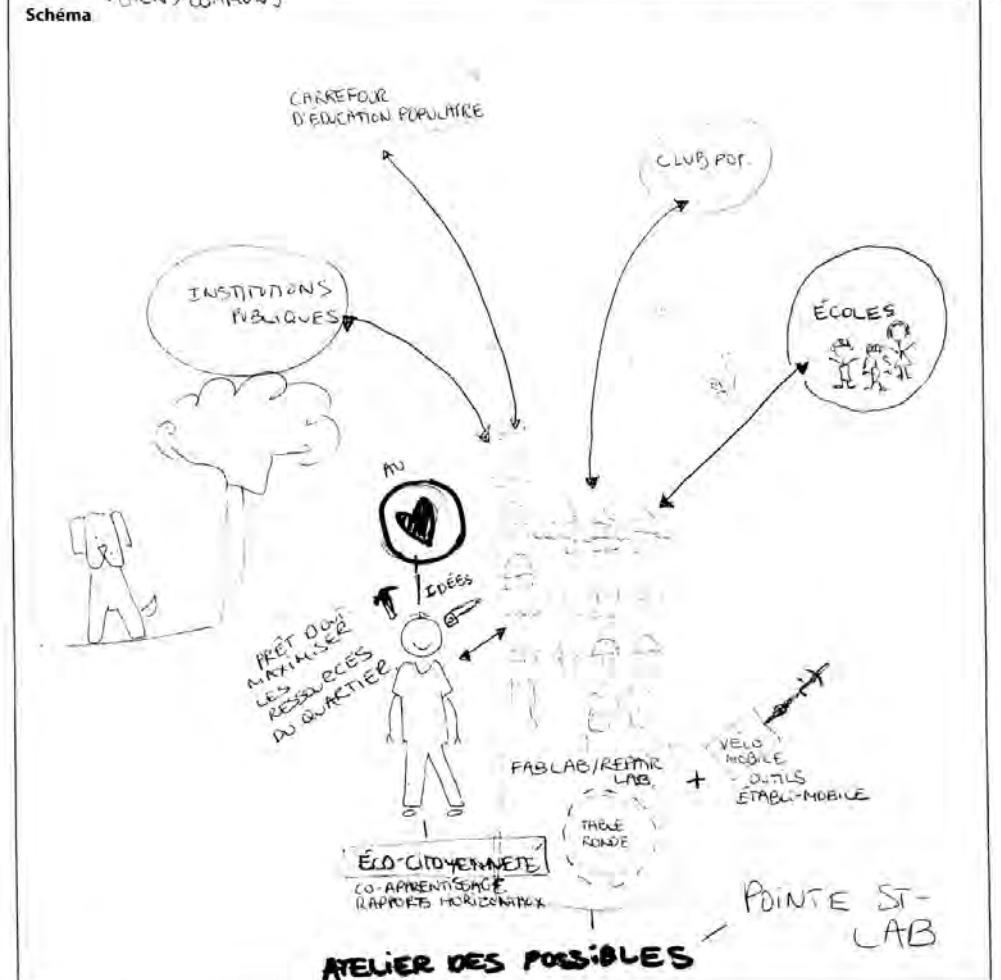 Schéma
CARREFOUR
D'ÉDUCATION POPULAIRE
CLUB POP.
INSTITUTIONS
PUBLIQUES
ÉCOLES
AU
IDÉES
PRÊT
MAXIMISER
LES
RESSOURCES
DU QUARTIER
FABLAB/REPAIR
LAB.
+
VELO
MOBILE
- OUTILS
ÉTABLI-MOBILE
TABLE
RONDE
ÉCO-CITOYENNETÉ
CO-APPRENTISSAGE
RAPPORTS HORIZONTAUX
POINTE ST-
LAB
ATELIER DES POSSIBLES